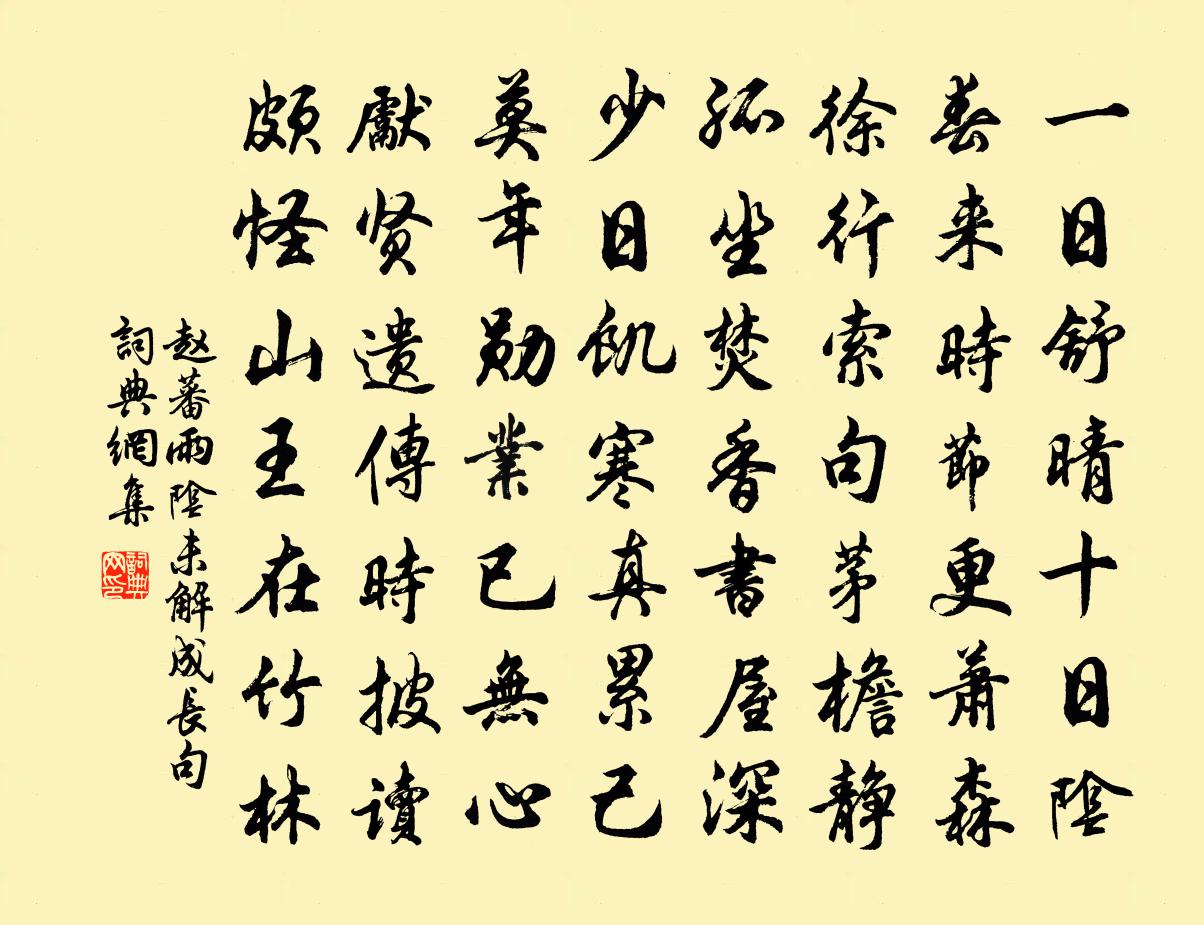 一日舒晴十日陰
春来時節更蕭森
徐行索句茅檐静
孤坐焚香書屋深
少日飢寒真累己
莫年勋業已無心
獻贤遗傳時披读
頗怪山王在竹林
赵蕃雨陰未解成長句
詞典網集
詞典网印